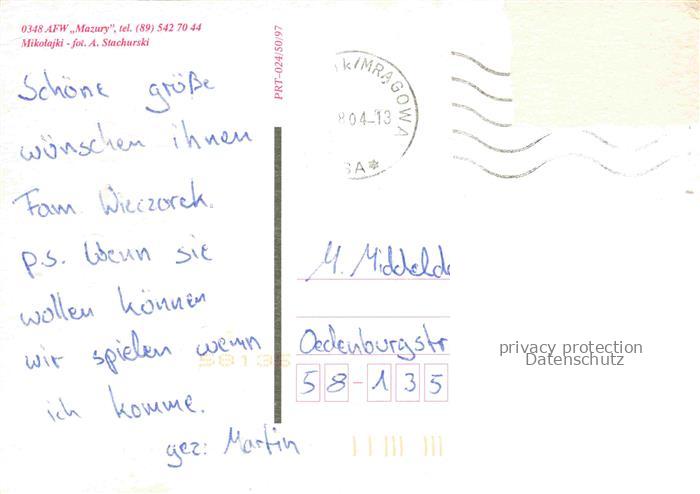 0348 AFW „Mazury", tel. (89) 542 70 44
Mikołajki - fot. A. Stachurski
PRT-024/50/97
Schöne größe
wünschen ihnen
Fam. Wieczorek.
p.s. Wenn sie
wollen können
wir spielen wenn
ich komme.
gez: Martin
k/MRĄGOWA
8.04-13
SA*
M. Middelde
Oedenburgstr
58-135
58135
privacy protection
Datenschutz